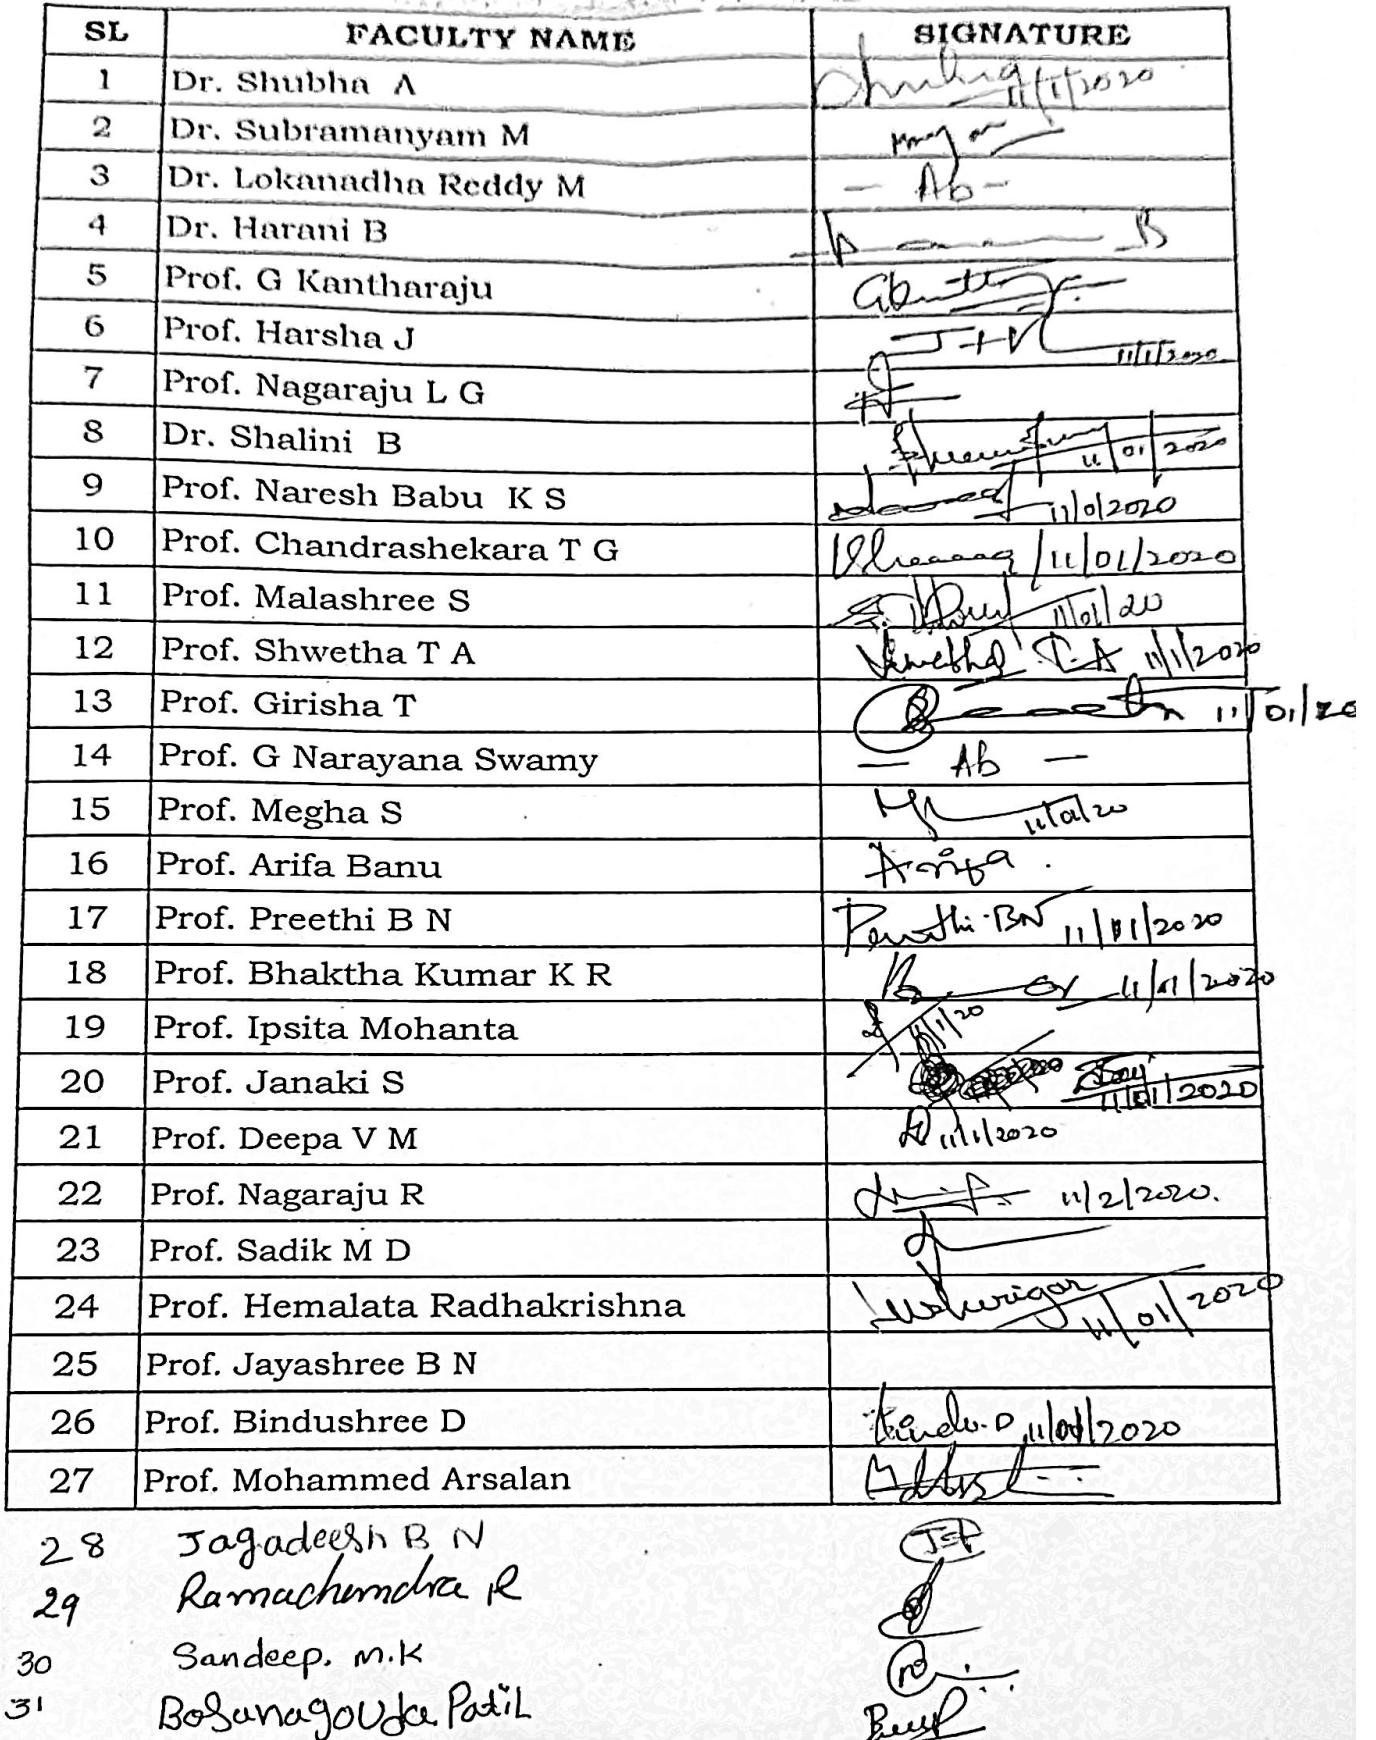 SL FACULTY NAME SIGNATURE
1 Dr. Shubha A 11/1/2020
2 Dr. Subramanyam M
3 Dr. Lokanadha Reddy M - Ab -
4 Dr. Harani B
5 Prof. G Kantharaju
6 Prof. Harsha J 11/1/2020
7 Prof. Nagaraju L G
8 Dr. Shalini B 11/01/2020
9 Prof. Naresh Babu K S 11/0/2020
10 Prof. Chandrashekara T G 11/01/2020
11 Prof. Malashree S 11/01/20
12 Prof. Shwetha T A Shwetha T.A 11/1/2020
13 Prof. Girisha T 11/01/20
14 Prof. G Narayana Swamy — Ab —
15 Prof. Megha S 11/01/20
16 Prof. Arifa Banu Arifa
17 Prof. Preethi B N Preethi.BN 11/01/2020
18 Prof. Bhaktha Kumar K R 11/01/2020
19 Prof. Ipsita Mohanta 11/1/20
20 Prof. Janaki S 11/01/2020
21 Prof. Deepa V M 11/1/2020
22 Prof. Nagaraju R 11/2/2020.
23 Prof. Sadik M D
24 Prof. Hemalata Radhakrishna 11/01/2020
25 Prof. Jayashree B N
26 Prof. Bindushree D Bindu.D 11/01/2020
27 Prof. Mohammed Arsalan
28 Jagadeesh B N
29 Ramachandra R
30 Sandeep. M.K
31 Basanagouda Patil